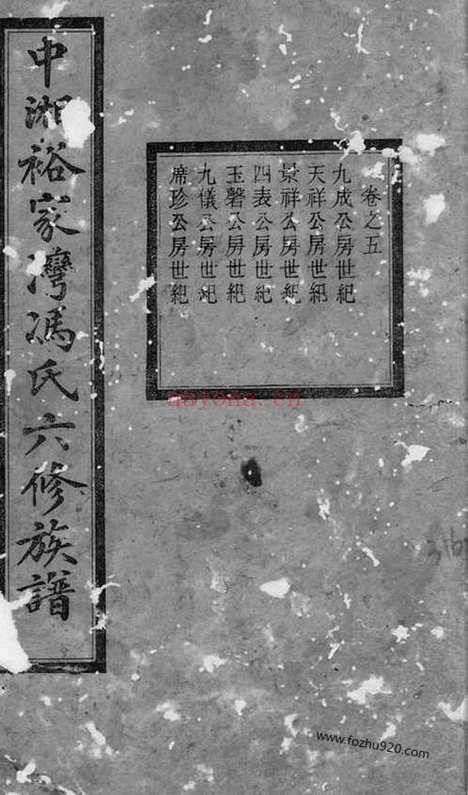 中湘裕家灣馮氏六修族譜
卷之五
九成公房世紀
天祥公房世紀
景祥公房世紀
四表公房世紀
玉磬公房世紀
九儀公房世紀
席珍公房世紀
nayona.cn
www.fozhu920.com